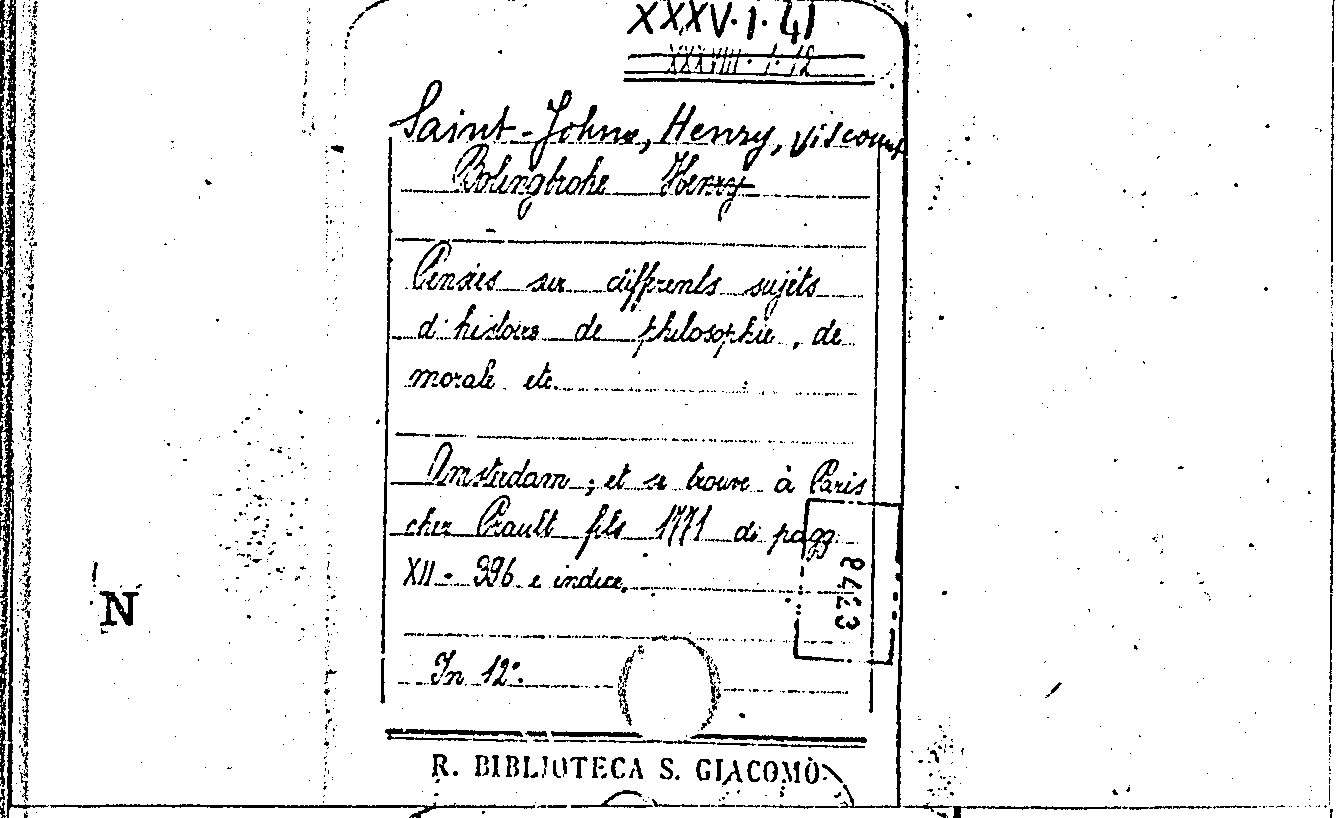 XXXV.1.41
XXXVIII.1.12
Saint-John, Henry, viscount
Bolingbroke Henry
Pensées sur différents sujets
d'histoire de philosophie, de
morale etc.
Amsterdam; et se trouve à Paris
chez Prault fils 1771 di pagg.
XII-396 e indice.
8423
N
In 12°.
R. BIBLIOTECA S. GIACOMO